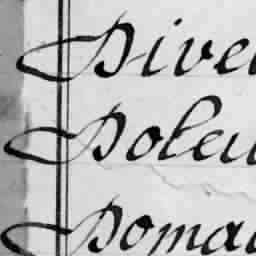 Dive
Doleu
Domai